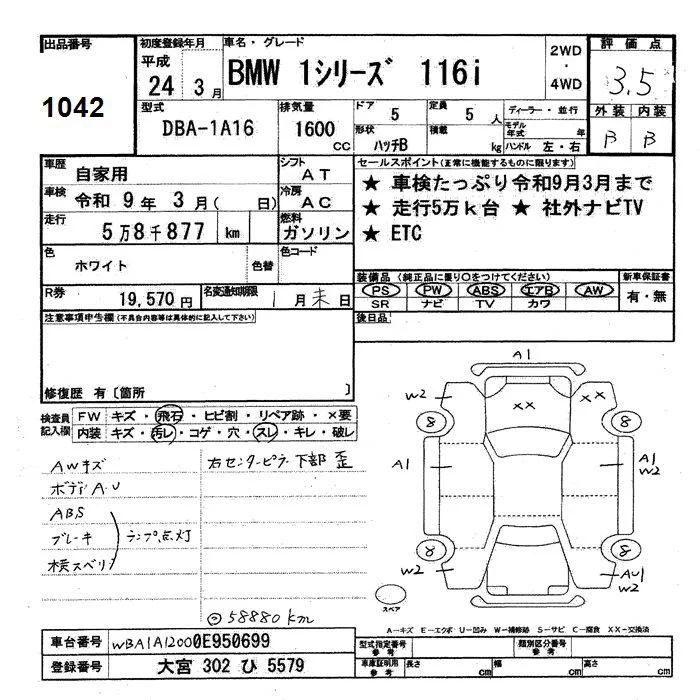 出品番号
1042
初度登録年月
平成
24 3月
車名・グレード
BMW 1シリーズ 116i
2WD
・
4WD
評価点
3.5
外装 内装
B B
型式
DBA-1A16
排気量
1600
CC
ドア 5
定員 5 人
ディーラー・並行
モデル年式 年
形状 ハッチB
積載 kg
ハンドル 左・右
車歴 自家用
シフト AT
車検 令和 9年 3月( 日)
冷房 AC
走行 5万8千877 km
燃料 ガソリン
色 ホワイト 色替
色コード
R券 19,570円
名変通知期限 1月末日
セールスポイント(正常に機能するものに限ります)
★ 車検たっぷり令和9月3月まで
★ 走行5万k台 ★ 社外ナビTV
★ ETC
装備品 (純正品に限り○をつけてください)
新車保証書
PS PW ABS エアB AW
有・無
SR ナビ TV カワ
後日品
注意事項申告欄(不具合内容等は具体的に記入して下さい)
修復歴 有〔箇所 〕
検査員記入欄
FW キズ・飛石・ヒビ割・リペア跡・×要
内装 キズ・汚レ・コゲ・穴・スレ・キレ・破レ
AWキズ
右センターピラー下部 歪
ボディA.U
ABS
ブレーキ
ランプ点灯
横スベリ
⊙ 58880km
A1
W2 W2
XX
8 8
A1
A1
W2
8 8
W2
AU1
W2
スペア
A-キズ E-エクボ U-凹み W-補修跡 S-サビ C-腐食 XX-交換済
車台番号 WBA1A12000E950699
登録番号 大宮 302 ひ 5579
型式指定番号
参考
類別区分番号
参考
車庫証明用
参考
長さ cm
幅 cm
高さ cm